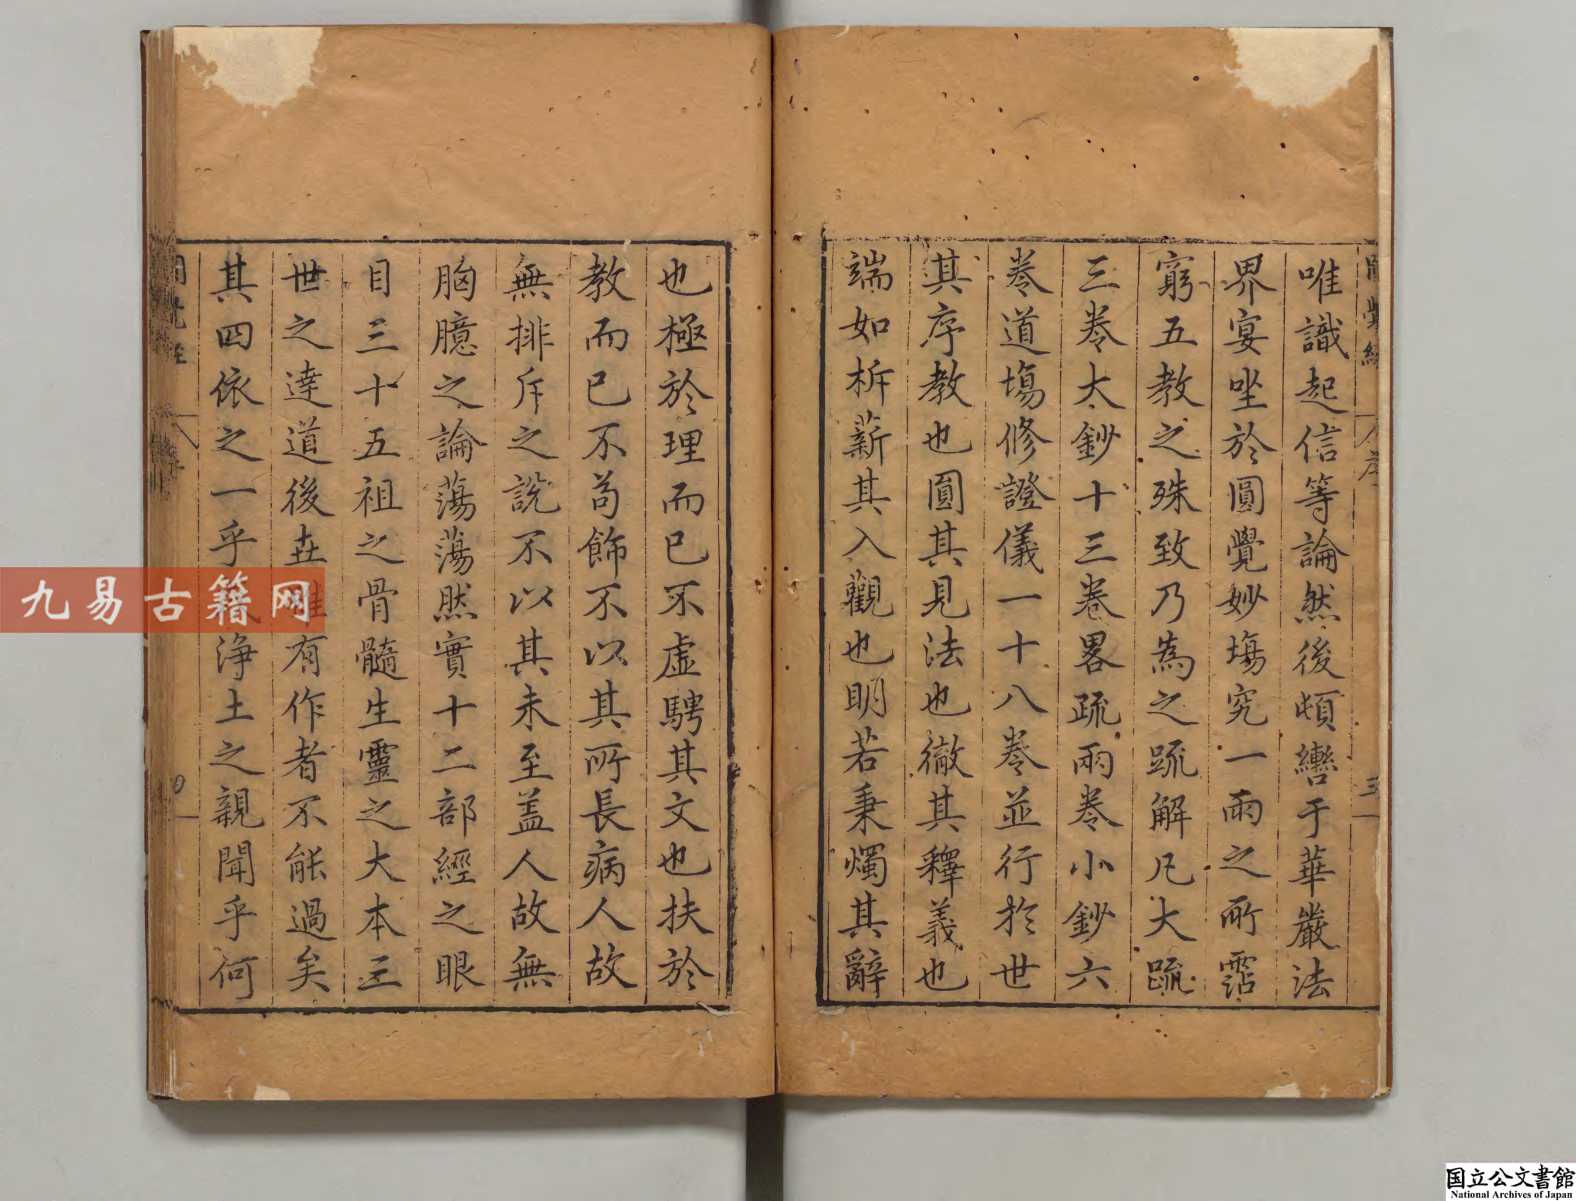 圓覺經
序
三
唯識起信等論然後頓轡于華嚴法
界宴坐於圓覺妙場究一雨之所霑
窮五教之殊致乃為之疏解凡大疏
三卷大鈔十三卷畧疏兩卷小鈔六
卷道場修證儀一十八卷並行於世
其序教也圓其見法也徹其釋義也
端如析薪其入觀也明若秉燭其辭
也極於理而已不虛騁其文也扶於
教而已不苟飾不以其所長病人故
無排斥之說不以其未至蓋人故無
胸臆之論蕩蕩然實十二部經之眼
目三十五祖之骨髓生靈之大本三
世之達道後世雖有作者不能過矣
其四依之一乎淨土之親聞乎何
九易古籍网
国立公文書館
National Archives of Japan